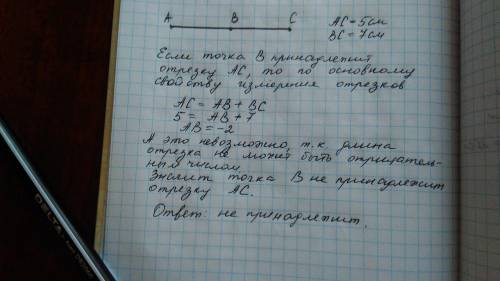 A B C
AC = 5см
BC = 7см
Если точка В принадлежит
отрезку АС, то по основному
свойству измерения отрезков
AC = AB + BC
5 = AB + 7
AB = -2
А это невозможно, т.к. длина
отрезка не может быть отрицатель-
ным числом.
Значит точка В не принадлежит
отрезку АС.
Ответ: не принадлежит.
DELTA